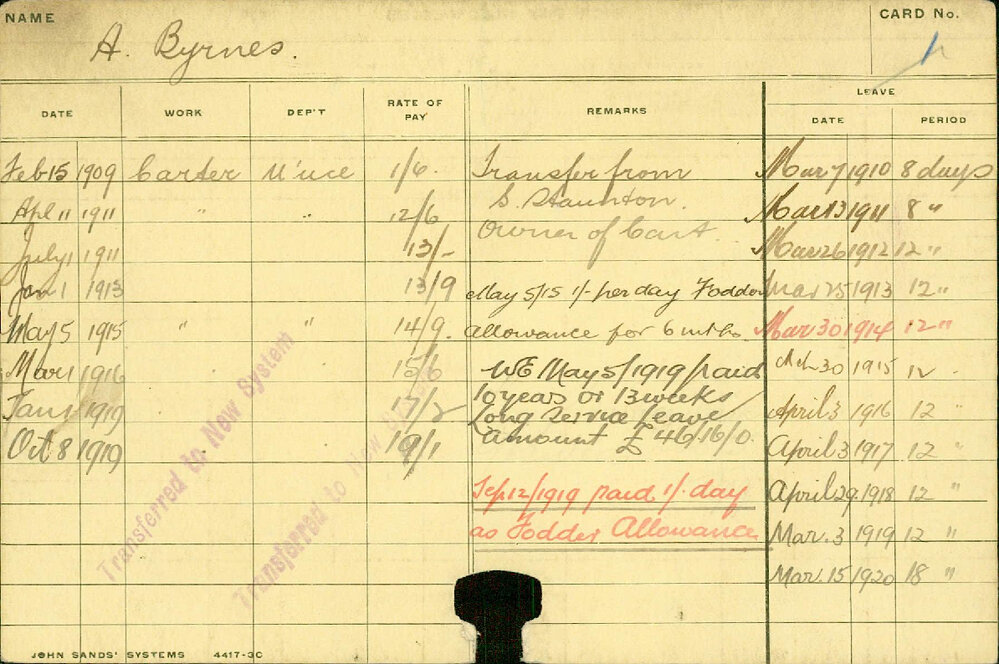 NAME
A. Byrnes.
CARD No.
DATE WORK DEP'T RATE OF PAY REMARKS LEAVE DATE PERIOD
Feb 15 1909 Carter M'vce 1/6. Transfer from Mar 7 1910 8 days
Apl 11 1911 " " 12/6 S. Staunton. Mar 13 1911 8 "
July 1 1911 13/- Owner of Cart. Mar 26 1912 12 "
Jan 1 1913 13/9 May 5/15 1/- per day Fodder Mar 25 1913 12 "
May 5 1915 " " 14/9. Allowance for 6 mths. Mar 30 1914 12 "
Mar 1 1916 15/6 WE May 5/1919 paid Mch 30 1915 12
Jan 1 1919 17/2 10 years or 13 weeks April 3 1916 12 "
Long Service Leave
Oct 8 1919 19/1 amount £46/16/0. April 3 1917 12 "
Sep 12/1919 paid 1/- day April 29. 1918 12 "
as Fodder Allowance Mar. 3 1919 12 "
Mar. 15 1920 18 "
Transferred to New System
Transferred to New
JOHN SANDS' SYSTEMS 4417-3C